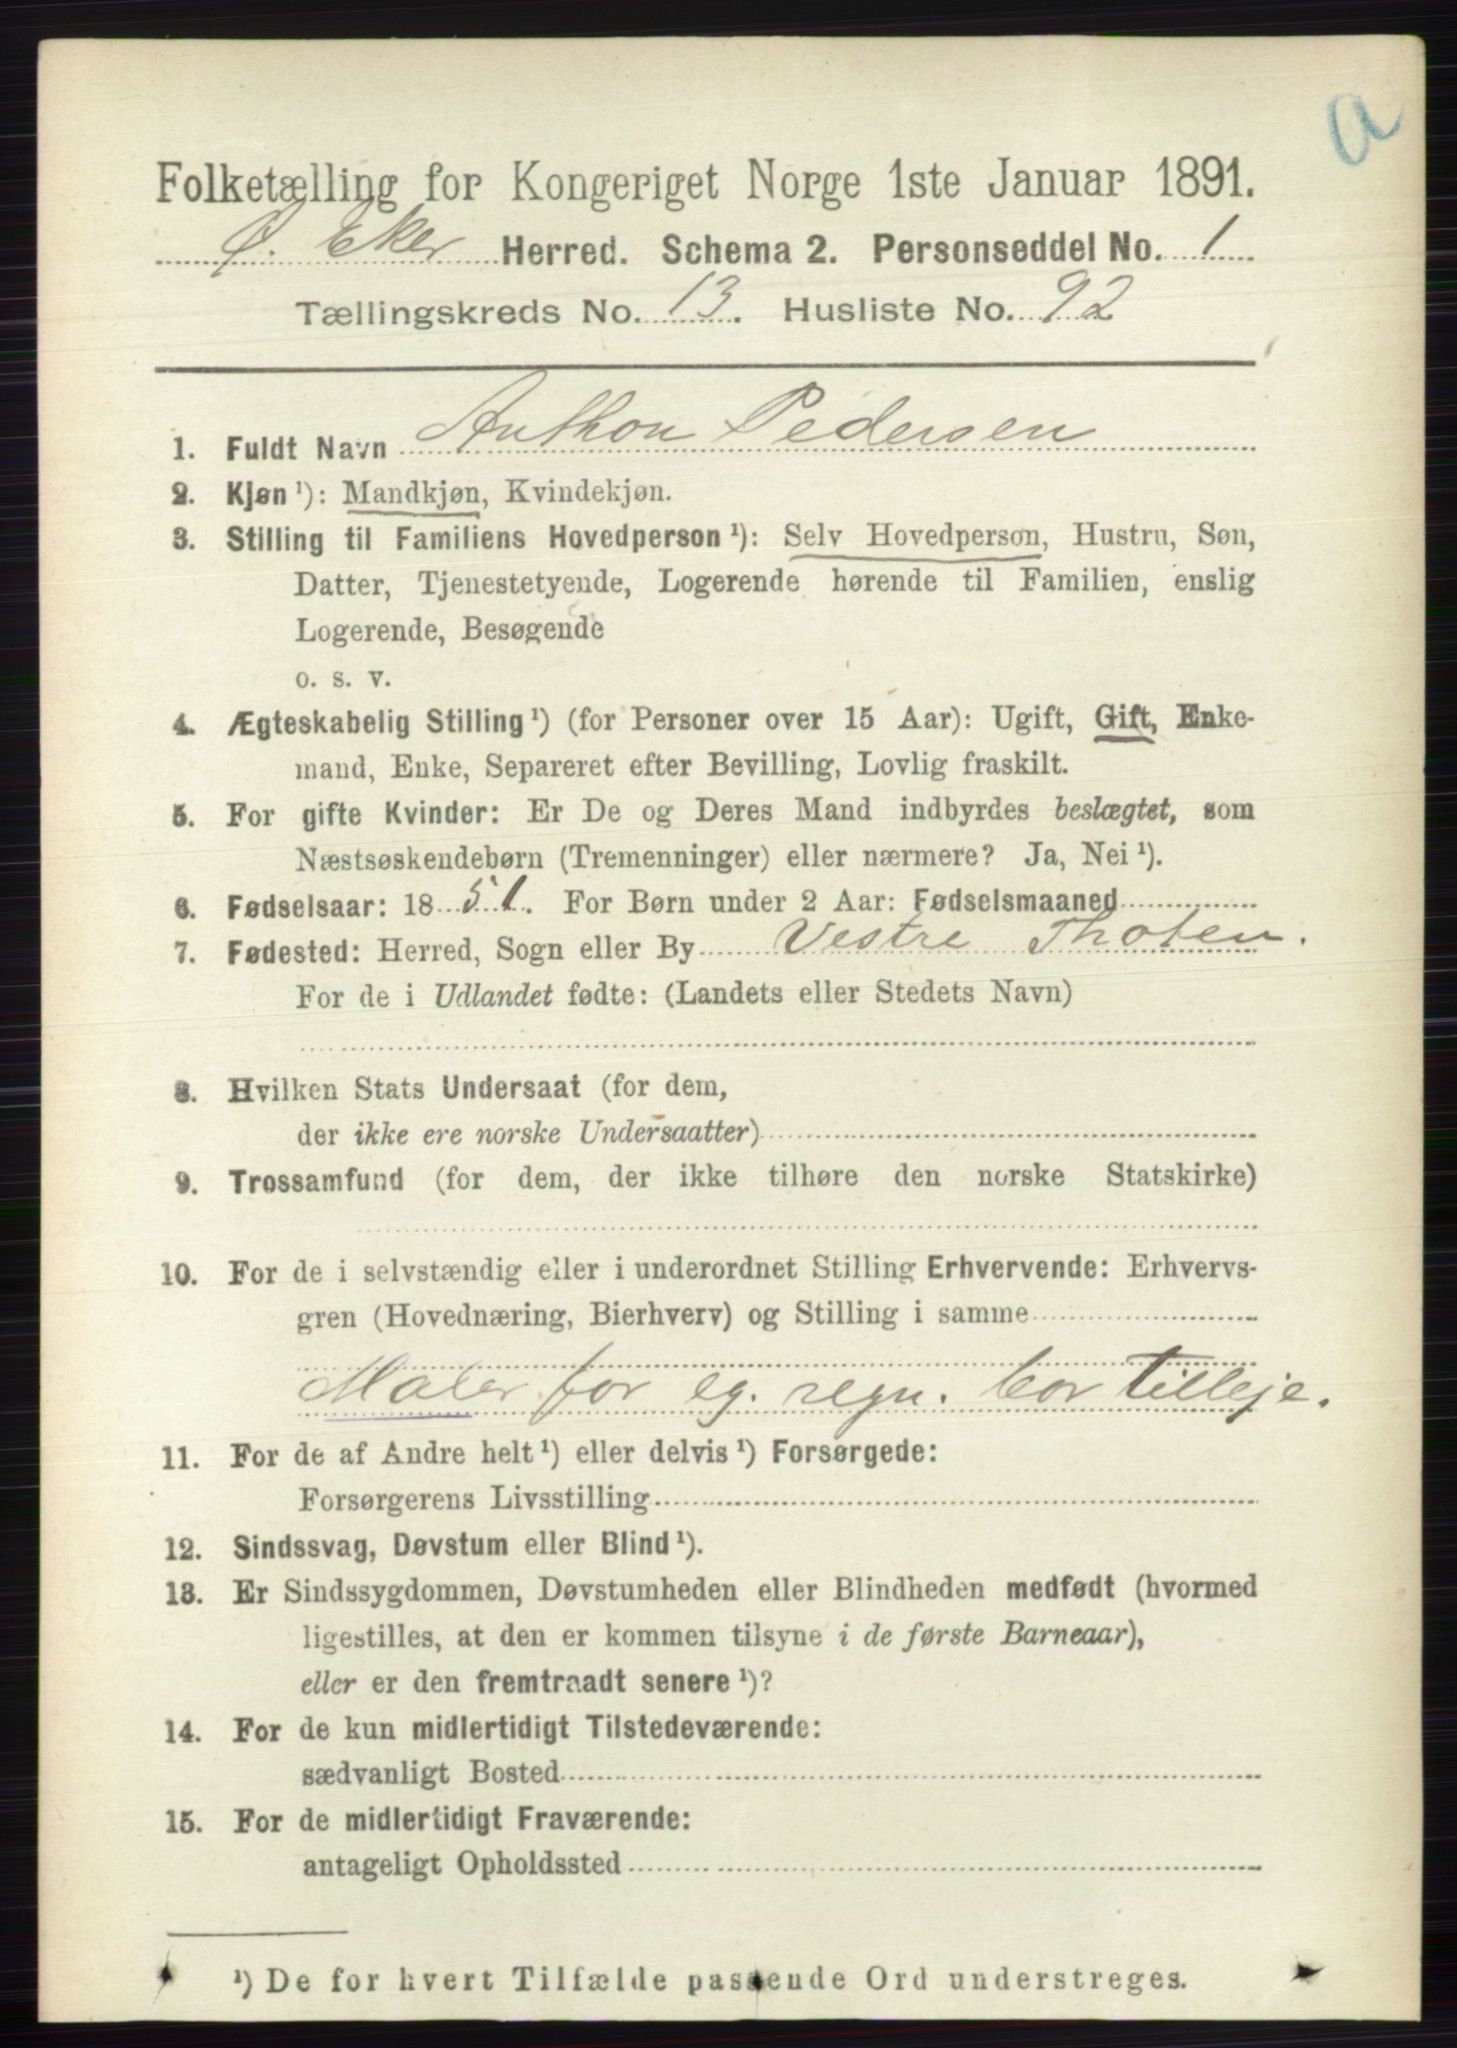 a
Folketælling for Kongeriget Norge 1ste Januar 1891.
Ø. Eker Herred. Schema 2. Personseddel No. 1
Tællingskreds No. 13. Husliste No. 92
1. Fuldt Navn Anthon Pedersen
2. Kjøn ¹): Mandkjøn, Kvindekjøn.
3. Stilling til Familiens Hovedperson ¹): Selv Hovedperson, Hustru, Søn,
Datter, Tjenestetyende, Logerende hørende til Familien, enslig
Logerende, Besøgende
o. s. v.
4. Ægteskabelig Stilling ¹) (for Personer over 15 Aar): Ugift, Gift, Enke-
mand, Enke, Separeret efter Bevilling, Lovlig fraskilt.
5. For gifte Kvinder: Er De og Deres Mand indbyrdes beslægtet, som
Næstsøskendebørn (Tremenninger) eller nærmere? Ja, Nei ¹).
6. Fødselsaar: 1851. For Børn under 2 Aar: Fødselsmaaned
7. Fødested: Herred, Sogn eller By Vestre Thoten.
For de i Udlandet fødte: (Landets eller Stedets Navn)
8. Hvilken Stats Undersaat (for dem,
der ikke ere norske Undersaatter)
9. Trossamfund (for dem, der ikke tilhøre den norske Statskirke)
10. For de i selvstændig eller i underordnet Stilling Erhvervende: Erhvervs-
gren (Hovednæring, Bierhverv) og Stilling i samme
Maler for eg. regn. bor tilleje.
11. For de af Andre helt ¹) eller delvis ¹) Forsørgede:
Forsørgerens Livsstilling
12. Sindssvag, Døvstum eller Blind ¹).
13. Er Sindssygdommen, Døvstumheden eller Blindheden medfødt (hvormed
ligestilles, at den er kommen tilsyne i de første Barneaar),
eller er den fremtraadt senere ¹)?
14. For de kun midlertidigt Tilstedeværende:
sædvanligt Bosted
15. For de midlertidigt Fraværende:
antageligt Opholdssted
¹) De for hvert Tilfælde passende Ord understreges.